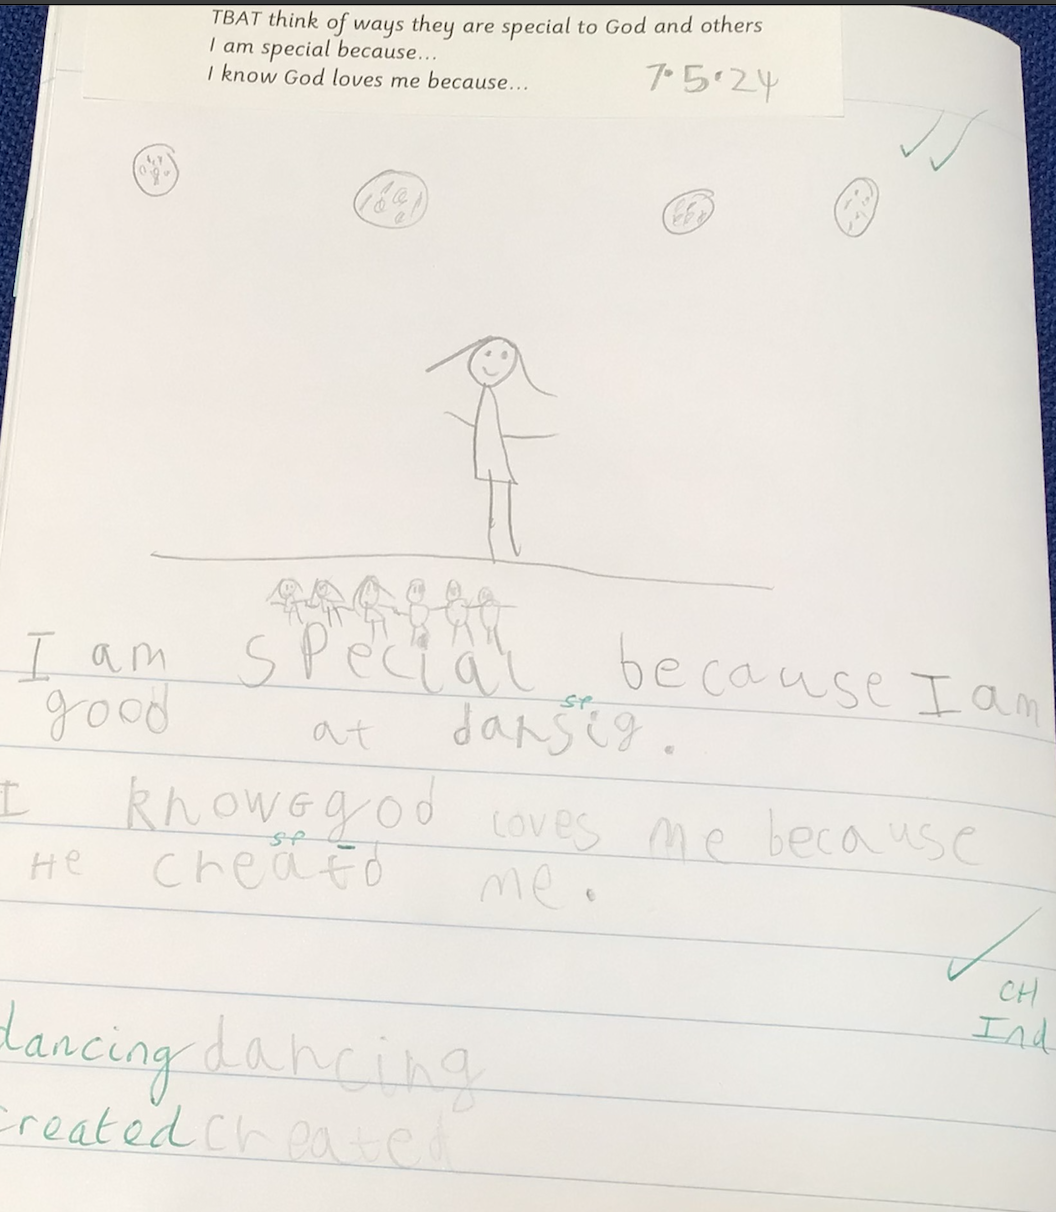 TBAT think of ways they are special to God and others
I am special because...
I know God loves me because...
7.5.24
I am special because I am
sp
good at dansig.
I know G god loves me because
sp
He creatd me.
CH
Ind
dancing dancing
created created